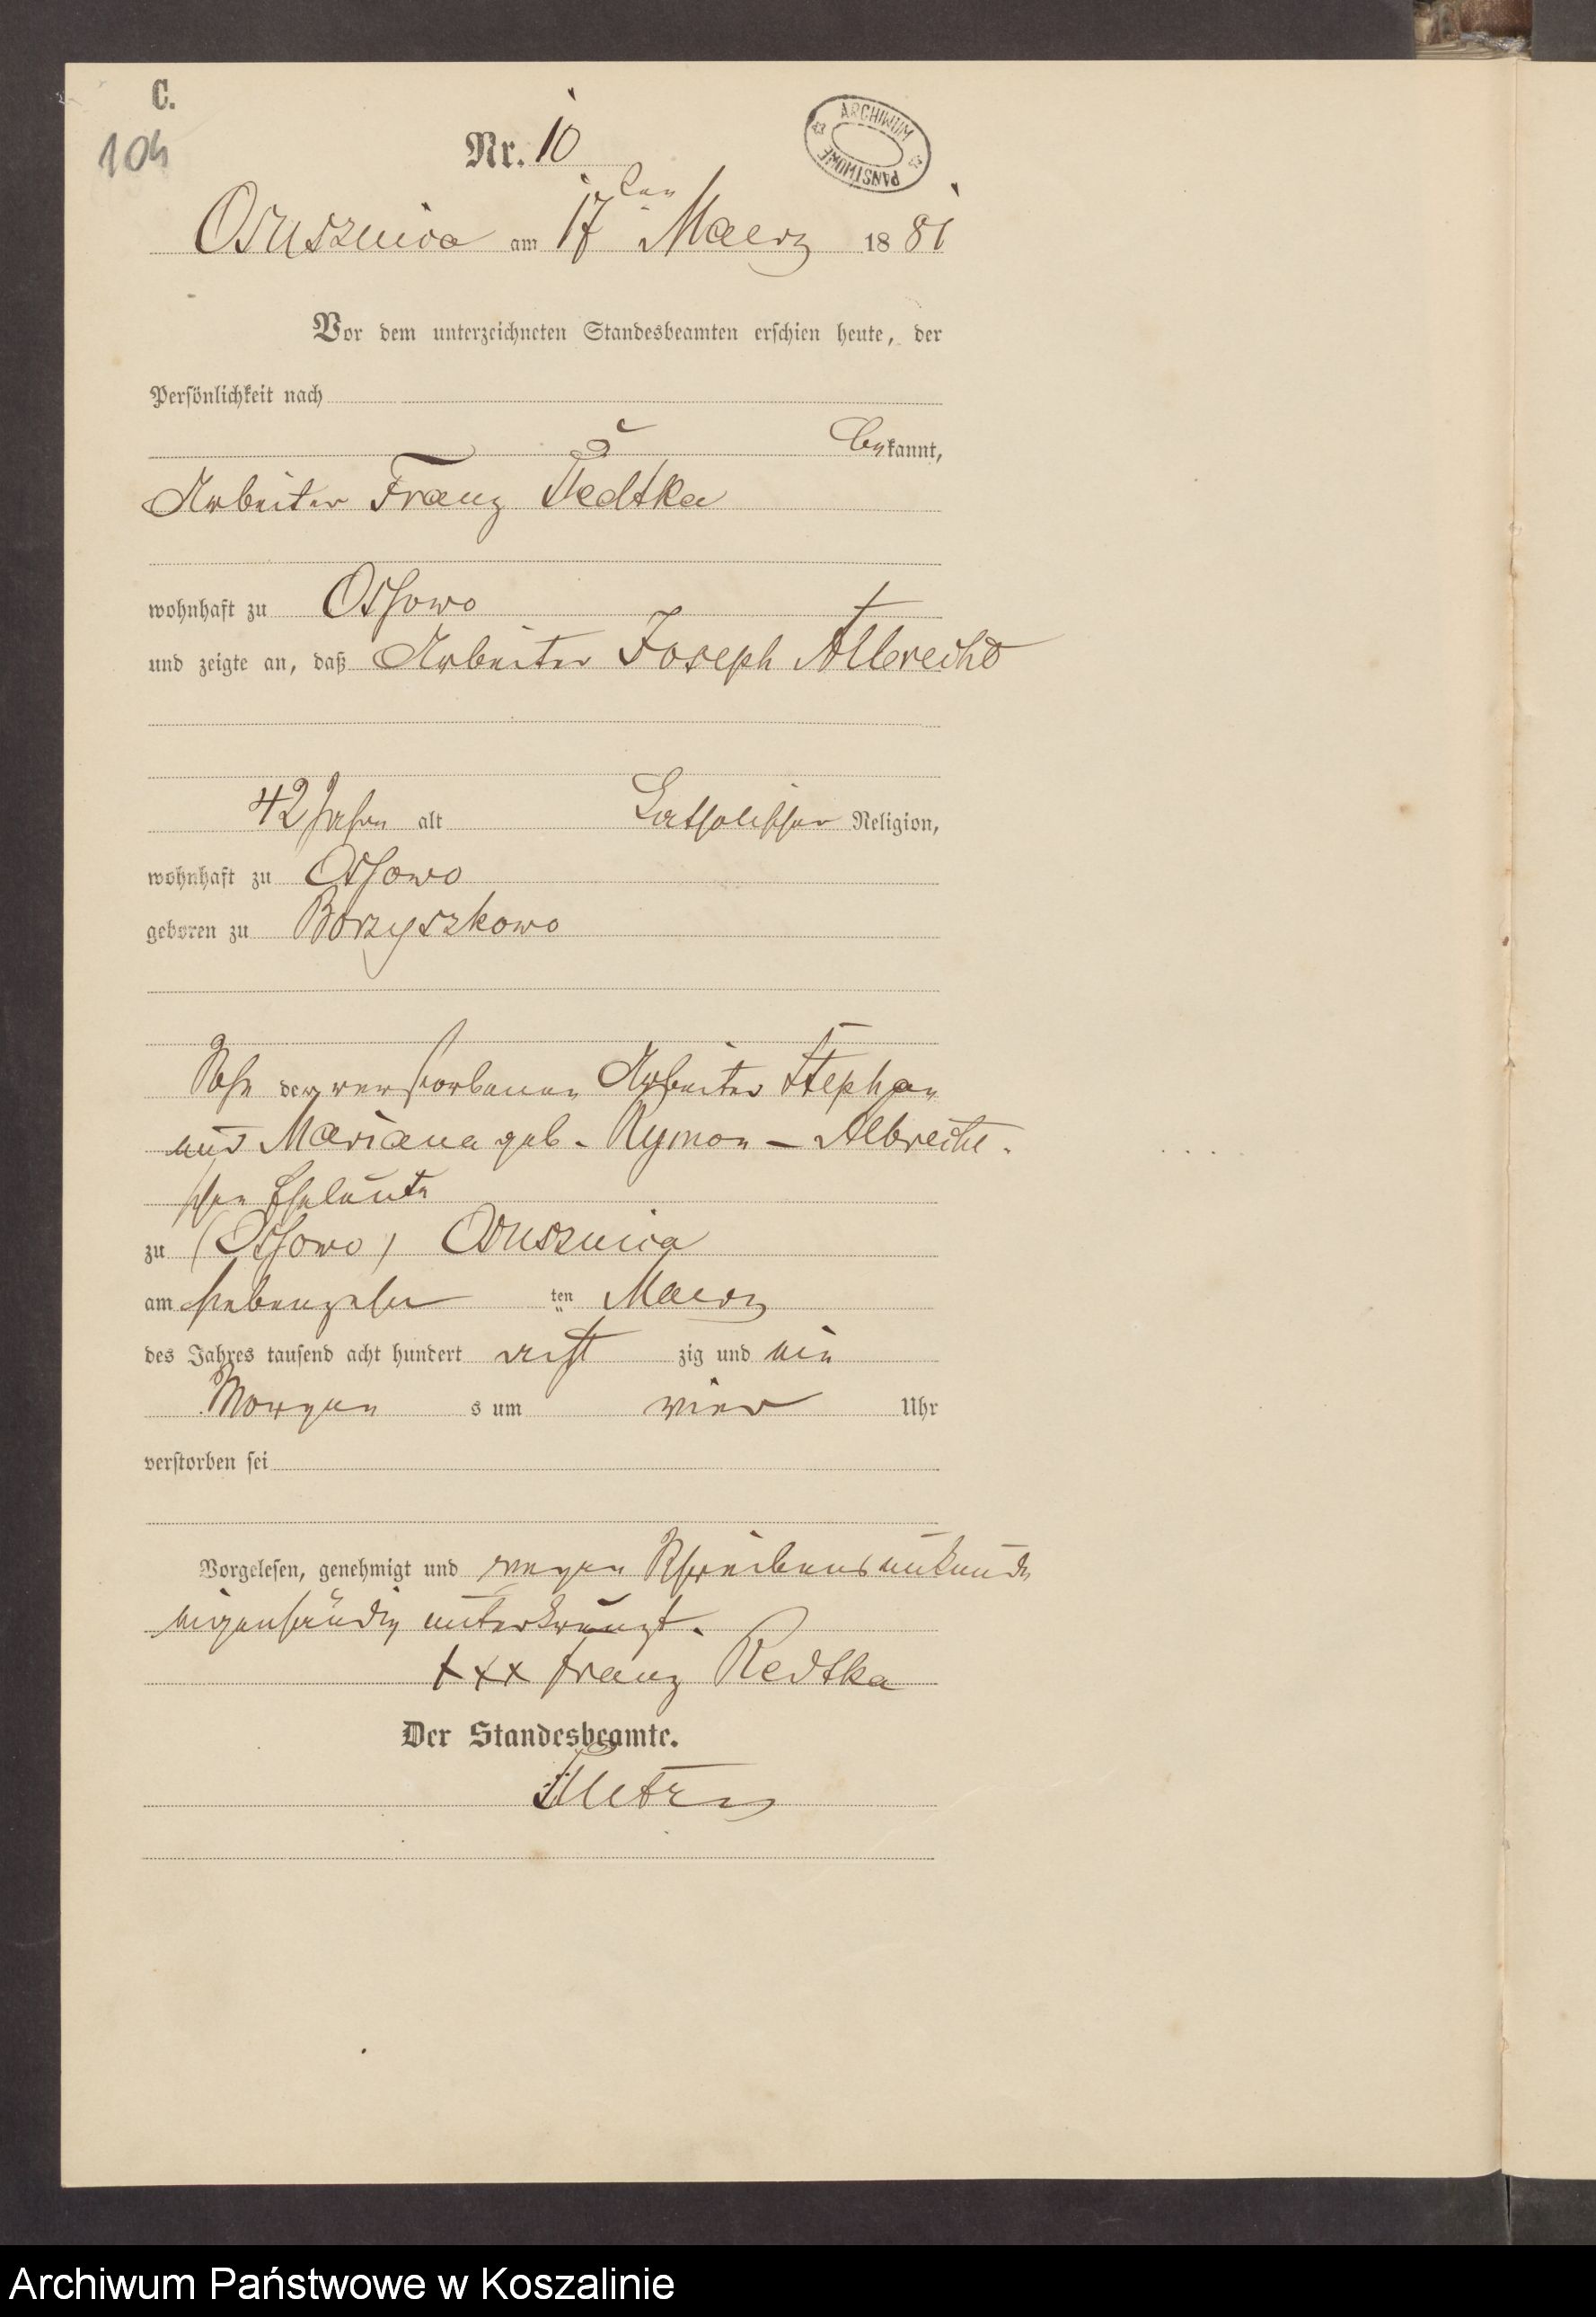 C.
104
Nr. 10
ARCHIWUM PAŃSTWOWE
Osusznica am 17ten Maerz 1881
Vor dem unterzeichneten Standesbeamten erschien heute, der
Persönlichkeit nach
bekannt,
Arbeiter Franz Redtka
wohnhaft zu Ossowo
und zeigte an, daß Arbeiter Joseph Albrecht
42 Jahre alt katholischer Religion,
wohnhaft zu Ossowo
geboren zu Borzyszkowo
Sohn der verstorbenen Arbeiter Stephan
und Mariana geb. Rymon – Albrecht-
schen Eheleute
zu (Ossowo) Osusznica
am siebenzehn ten Maerz
des Jahres tausend acht hundert acht zig und ein
Morgen s um vier Uhr
verstorben sei
Vorgelesen, genehmigt und wegen Schreibensunkunde
eigenhändig unterkreuzt.
+++ Franz Redtka
Der Standesbeamte.
Archiwum Państwowe w Koszalinie